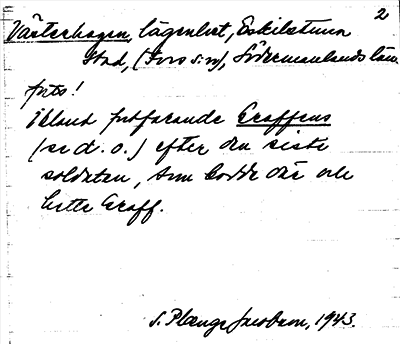 2
Västerhagen, lägenhet, Eskilstuna
stad, (Fors sn), Södermanlands län.
forts!
Ibland fortfarande Graffens
(se d. o.) efter den siste
soldaten, som bodde där och
hette Graff.
S. Plænge Jacobson, 1943.